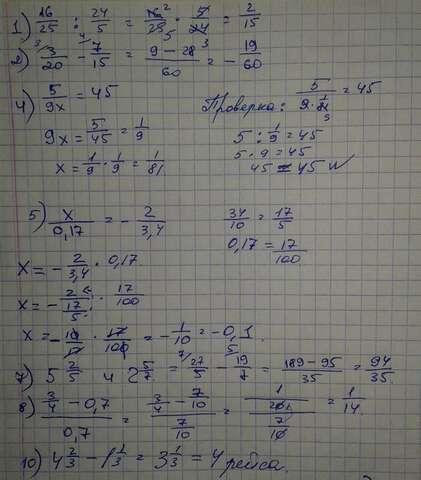 1) 16/25 : 24/5 = 16²/25₅ · 5/24 = 2/15
2) ³⁾3/20 - ⁴⁾7/15 = (9 - 28)/60 = - 19/60
4) 5/9x = 45 Проверка: 5/(9 · 1/81) = 45
9x = 5/45 = 1/9 5 : 1/9 = 45
x = 1/9 · 1/9 = 1/81 5 · 9 = 45
45 = 45 
5) x/0,17 = - 2/3,4 34/10 = 17/5
x = - 2/3,4 · 0,17 0,17 = 17/100
x = - 2/(17/5) · 17/100
x = - 10/17 · 17/100 = - 1/10 = -0,1.
7) 5 2/5 и 2 5/7 = ⁷⁾27/5 - ⁵⁾19/7 = (189 - 95)/35 = 94/35.
8) (3/4 - 0,7)/0,7 = (3/4 - 7/10)/(7/10) = (1/20)/(7/10) = 1/14.
10) 4 2/3 - 1 1/3 = 3 1/3 = 4 рейса.